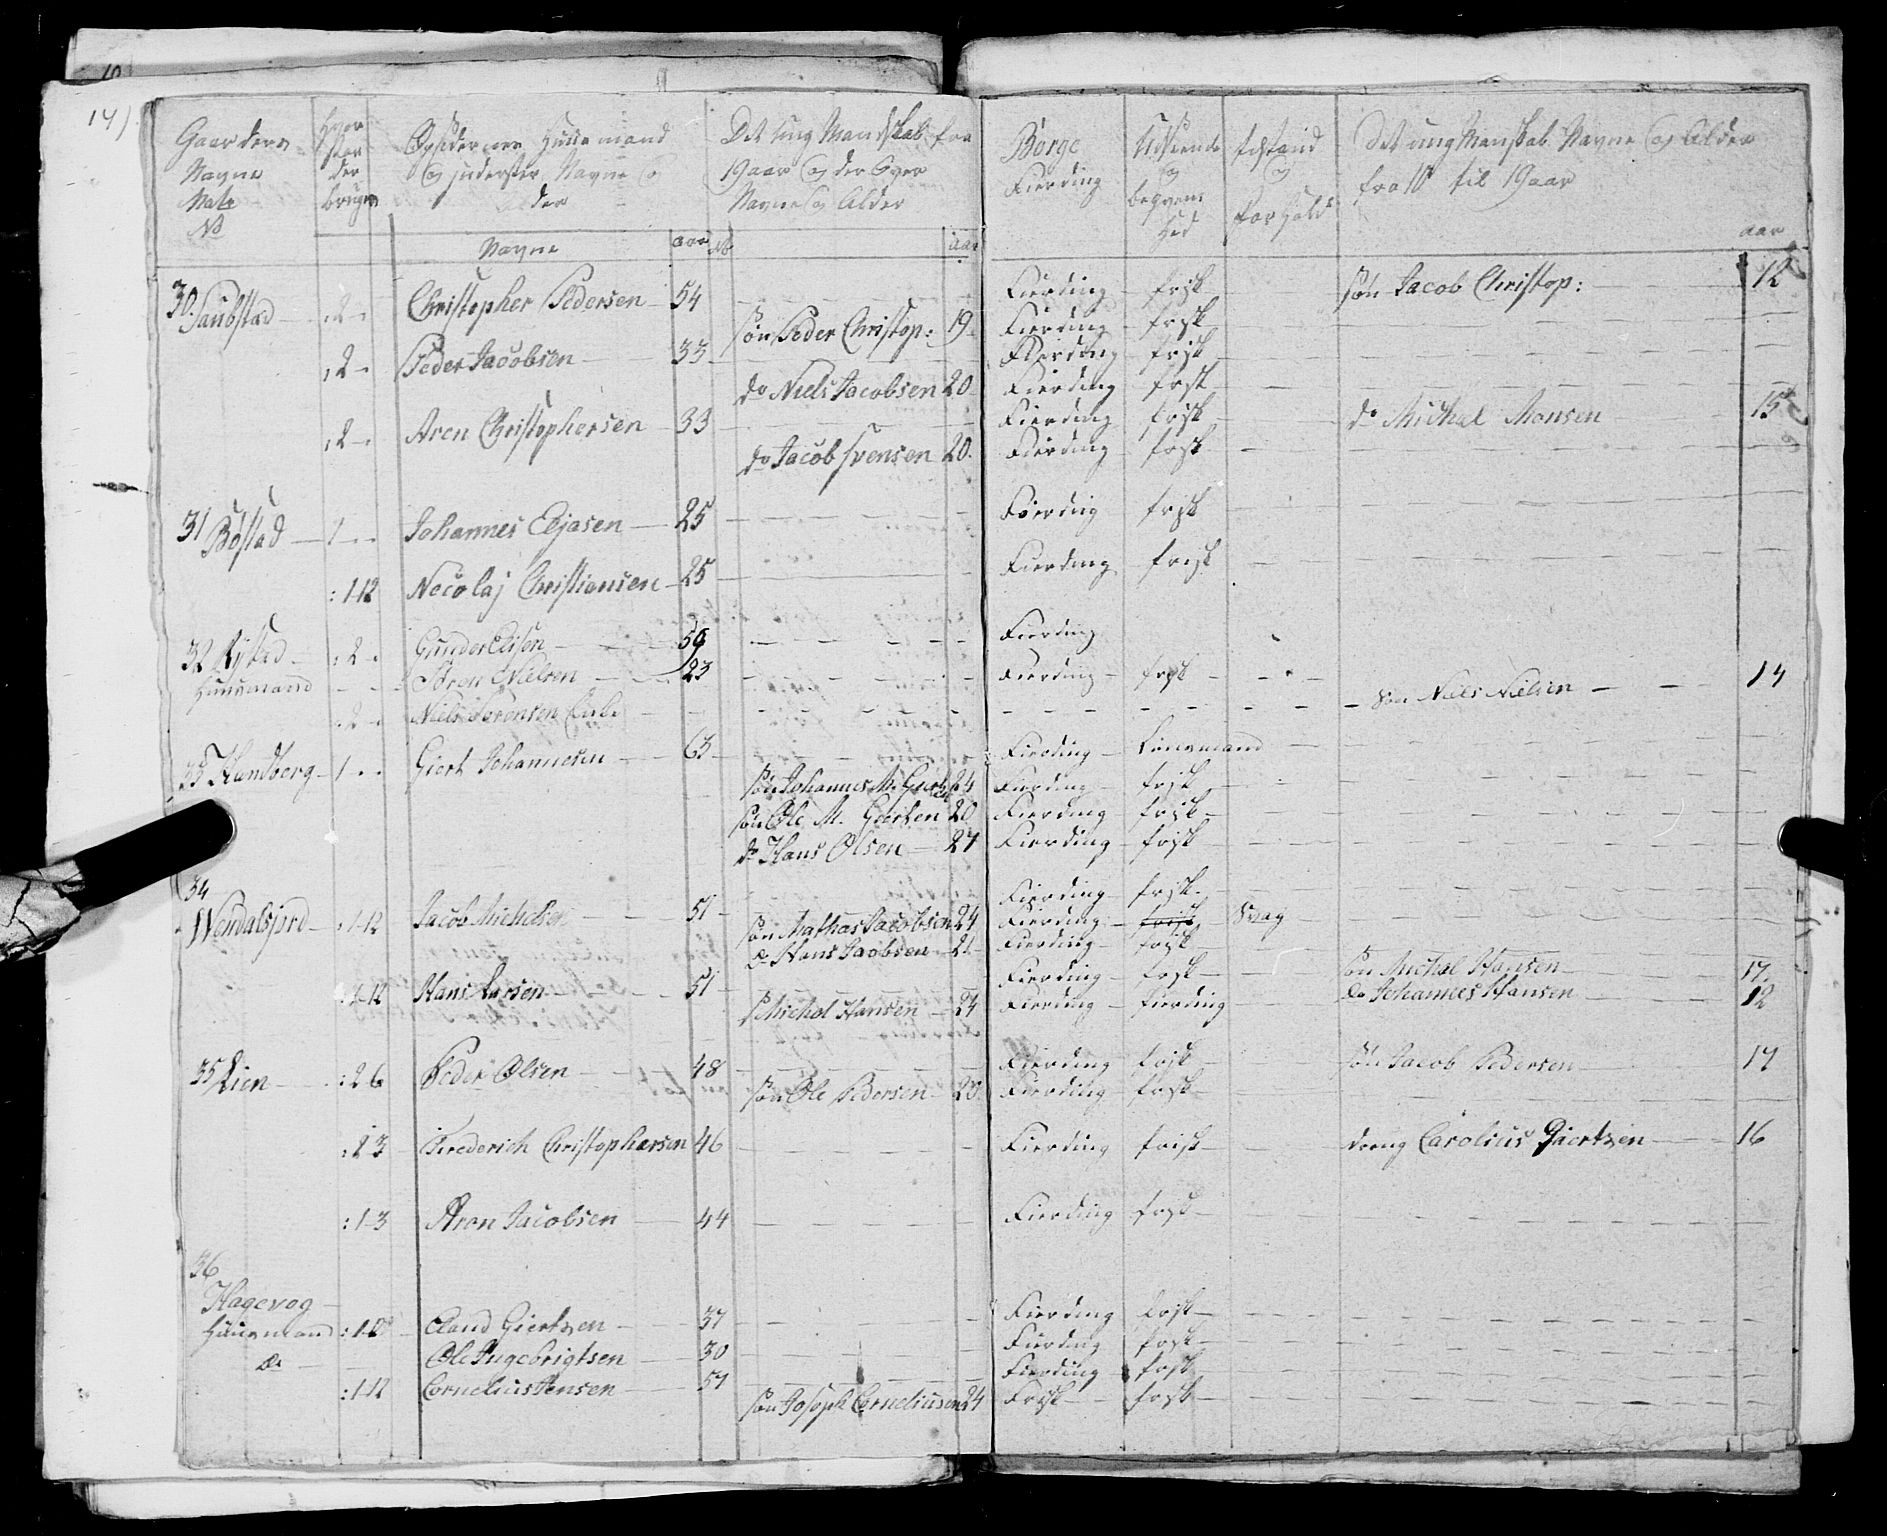 14)
Gaardens Navne Matr No
Hvor stor der bruges
Opsiderne Huusmænd og inderster Navne og Alder
Det ung Mandskab fra 19 aar og der over Navne og Alder
Borge Fierding
Udseende og beqvemhed
Tilstand og Forhold
Det ung Manskab Navne og Alder fra 10 til 19 aar
Navne aar No aar aar
30. Saubstad 2 Christopher Pedersen 54 Fierding frisk søn Jacob Christop: 12
søn Peder Christop: 19 Fierding frisk
2 Peder Jacobsen 33 Fierding frisk
do Niels Jacobsen 20 Fierding frisk
2 Aron Christophersen 33 Fierding frisk do Michal Monsen 15
do Jacob Svensen 20 Fierding frisk
31 Bøstad 1 Johannes Eljasen 25 Fierding frisk
:1-12 Necolaj Christiansen 25 Fierding frisk
32 Rystad :2 Gunder Elisen 59 Fierding
Huusmand Sören Nielsen 23 Fierding frisk
:2 Niels Sörensen Enke søn Niels Nielsen 14
33 Handberg 1 Giert Johannesen 63 Fierding Lensmand
søn Johannes M. Giertsen 24 Fierding frisk
søn Ole M. Giertsen 20 Fierding frisk
do Hans Olsen 27 Fierding frisk
34
Wendalsjord :1-12 Jacob Michelsen 57 Fierding frisk
søn Mathas Jacobsen 24 Fierding frisk Svag
do Hans Jacobsen 21 Fierding frisk
:1-12 Hans Larsen 51 Fierding frisk søn Michal Hansen 17
s Michel Hansen 24 Fierding fierding do Johannes Hansen 12
35 Lien :2 6 Peder Olsen 48 Fierding frisk søn Jacob Pedersen 17
søn Ole Pedersen 20 Fierding frisk
:2 3 Frederich Christophersen 46 Fierding frisk dreng Carolius Giertsen 16
:1-3 Aron Jacobsen 44 Fierding frisk
36
Hagevog
Huusmand :1-0 Claud Giertsen 37 Fierding frisk
do Ole Ingebrigtsen 30 Fierding frisk
:1-12 Cornelius Jensen 57 Fierding frisk
søn Joseph Corneliusen 24 Frisk frisk